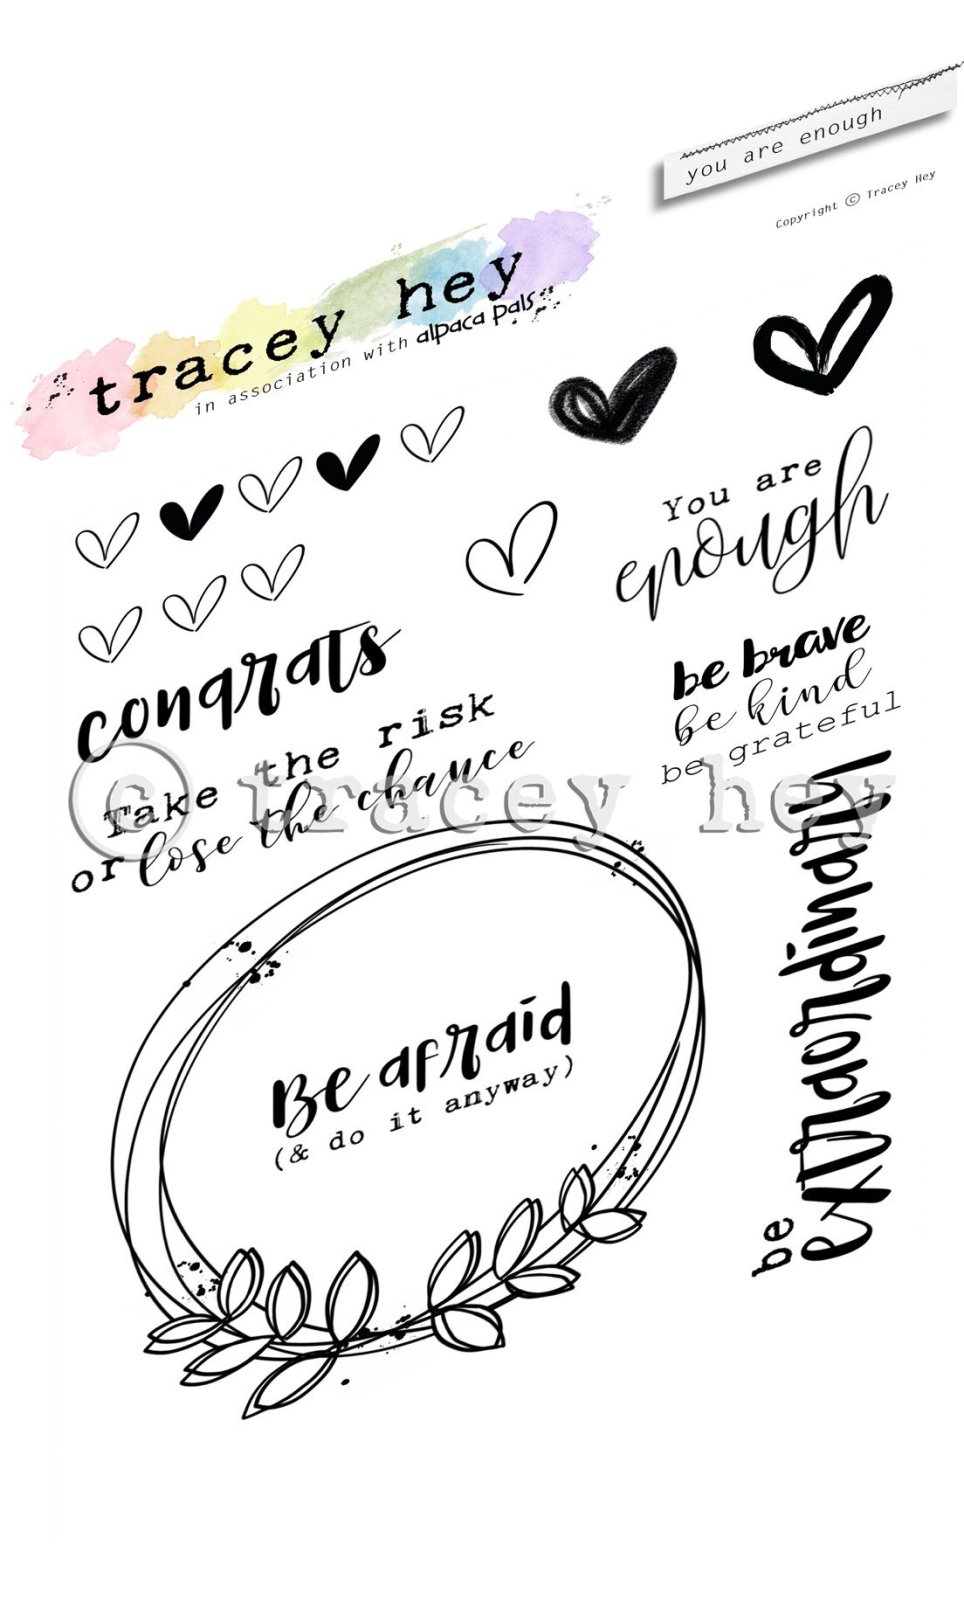 you are enough
Copyright © Tracey Hey
tracey hey
in association with alpaca pals
You are
enough
congrats
be brave
be kind
be grateful
Take the risk
or lose the chance
© tracey hey
Be afraid
(& do it anyway)
be
extraordinary